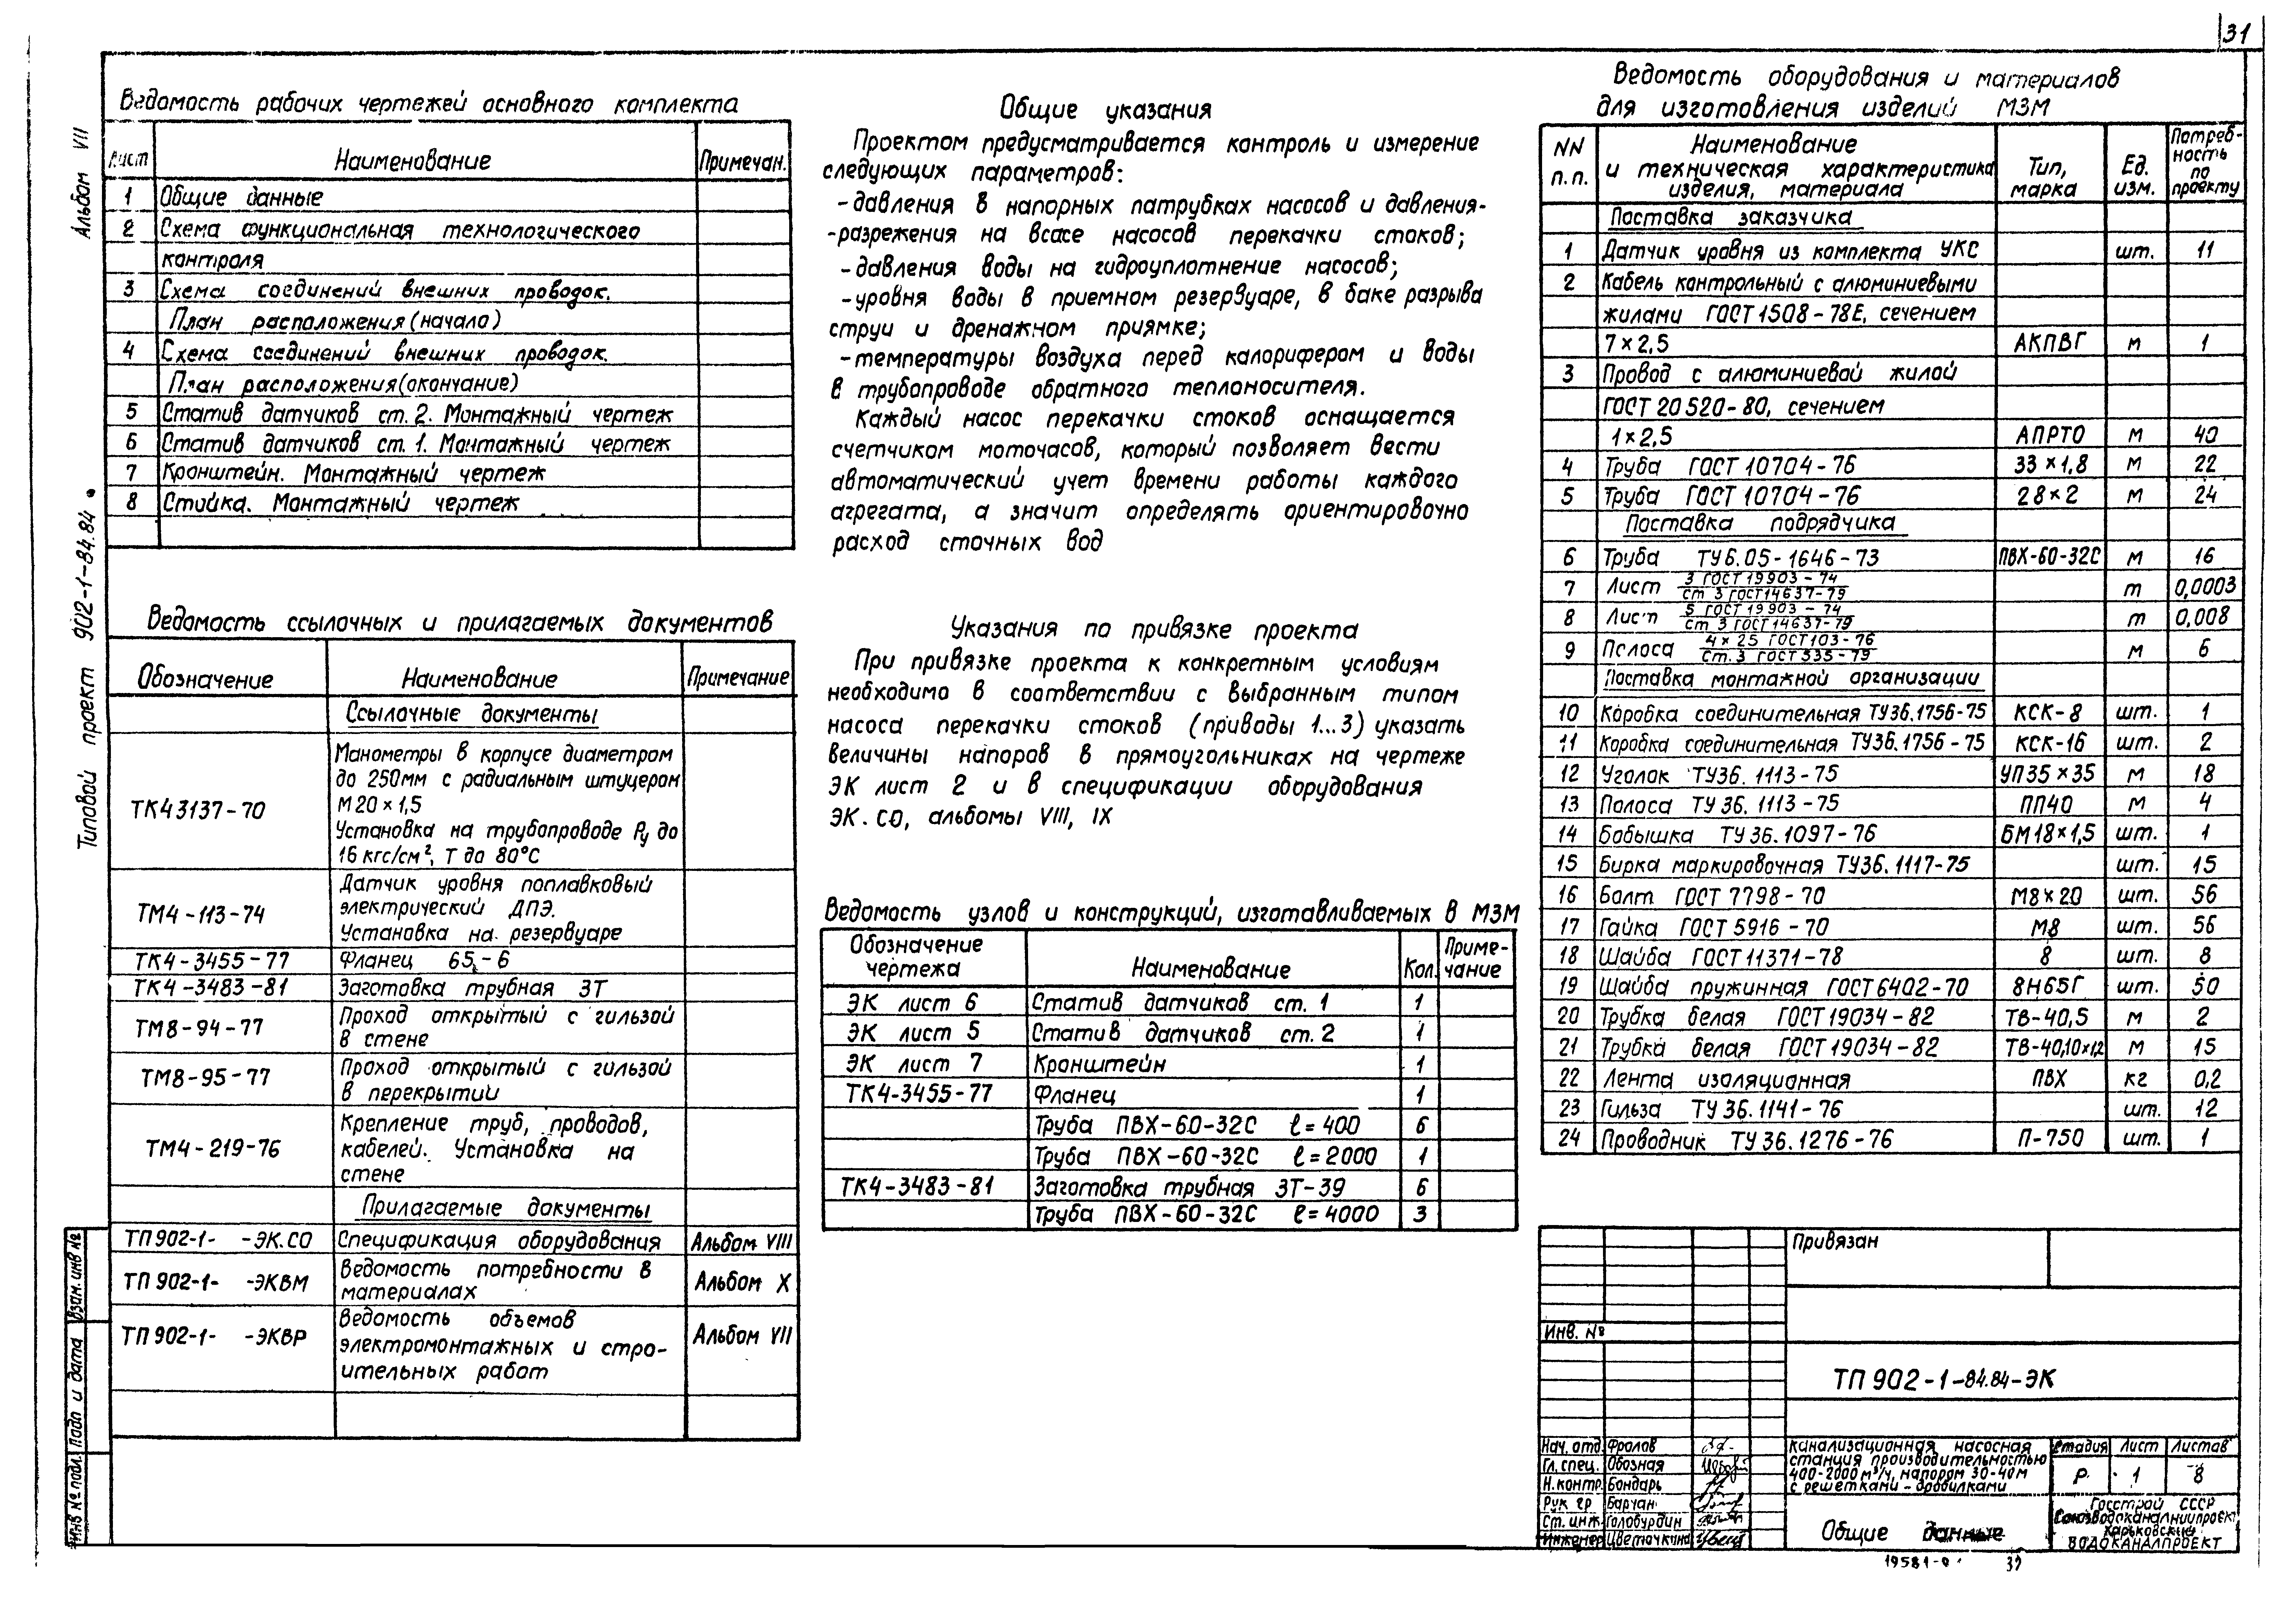 31
Альбом VII
Типовой проект 902-1-84.84
Взам. инв №
Подп и дата
Инв № подл.
Ведомость рабочих чертежей основного комплекта
Лист Наименование Примечан.
1 Общие данные
2 Схема функциональная технологического
контроля
3 Схема соединений внешних проводок.
План расположения (начало)
4 Схема соединений внешних проводок.
План расположения (окончание)
5 Статив датчиков ст. 2. Монтажный чертеж
6 Статив датчиков ст. 1. Монтажный чертеж
7 Кронштейн. Монтажный чертеж
8 Стойка. Монтажный чертеж
Ведомость ссылочных и прилагаемых документов
Обозначение Наименование Примечание
Ссылочные документы
Манометры в корпусе диаметром
до 250мм с радиальным штуцером
ТК4 3137-70 М 20 × 1,5
Установка на трубопроводе Ру до
16 кгс/см², Т до 80°С
Датчик уровня поплавковый
ТМ4-113-74 электрический ДПЭ.
Установка на резервуаре
ТК4-3455-77 Фланец 65-6
ТК4-3483-81 Заготовка трубная ЗТ
ТМ8-94-77 Проход открытый с гильзой
в стене
ТМ8-95-77 Проход открытый с гильзой
в перекрытии
Крепление труб, проводов,
ТМ4-219-76 кабелей. Установка на
стене
Прилагаемые документы
ТП 902-1- -ЭК.СО Спецификация оборудования Альбом VIII
ТП 902-1- -ЭКВМ Ведомость потребности в Альбом X
материалах
ТП 902-1- -ЭКВР Ведомость объемов Альбом VII
электромонтажных и стро-
ительных работ
Общие указания
Проектом предусматривается контроль и измерение
следующих параметров:
- давления в напорных патрубках насосов и давления-
-разрежения на всасе насосов перекачки стоков;
- давления воды на гидроуплотнение насосов;
- уровня воды в приемном резервуаре, в баке разрыва
струи и дренажном приямке;
- температуры воздуха перед калорифером и воды
в трубопроводе обратного теплоносителя.
Каждый насос перекачки стоков оснащается
счетчиком моточасов, который позволяет вести
автоматический учет времени работы каждого
агрегата, а значит определять ориентировочно
расход сточных вод
Указания по привязке проекта
При привязке проекта к конкретным условиям
необходимо в соответствии с выбранным типом
насоса перекачки стоков (приводы 1...3) указать
величины напоров в прямоугольниках на чертеже
ЭК лист 2 и в спецификации оборудования
ЭК.СО, альбомы VIII, IX
Ведомость узлов и конструкций, изготавливаемых в МЗМ
Обозначение чертежа Наименование Кол. Приме-
чание
ЭК лист 6 Статив датчиков ст. 1 1
ЭК лист 5 Статив датчиков ст. 2 1
ЭК лист 7 Кронштейн 1
ТК4-3455-77 Фланец 1
Труба ПВХ-60-32С ℓ=400 6
Труба ПВХ-60-32С ℓ=2000 1
ТК4-3483-81 Заготовка трубная ЗТ-39 6
Труба ПВХ-60-32С ℓ=4000 3
Ведомость оборудования и материалов
для изготовления изделий МЗМ
NN п.п. Наименование и техническая характеристика изделия, материала Тип, марка Ед. изм. Потреб-
ность по проекту
Поставка заказчика
1 Датчик уровня из комплекта УКС шт. 11
2 Кабель контрольный с алюминиевыми
жилами ГОСТ 1508-78Е, сечением
7×2,5 АКПВГ м 1
3 Провод с алюминиевой жилой
ГОСТ 20520-80, сечением
1×2,5 АПРТО м 40
4 Труба ГОСТ 10704-76 33×1,8 м 22
5 Труба ГОСТ 10704-76 28×2 м 24
Поставка подрядчика
6 Труба ТУ6.05-1646-73 ПВХ-60-32С м 16
7 Лист 3 ГОСТ 19903-74 т 0,0003
ст 3 ГОСТ 14637-79
8 Лист 5 ГОСТ 19903-74 т 0,008
ст 3 ГОСТ 14637-79
9 Полоса 4×25 ГОСТ 103-76 м 6
Ст.3 ГОСТ 535-79
Поставка монтажной организации
10 Коробка соединительная ТУ36.1756-75 КСК-8 шт. 1
11 Коробка соединительная ТУ36.1756-75 КСК-16 шт. 2
12 Уголок ТУ36.1113-75 УП35×35 м 18
13 Полоса ТУ36.1113-75 ПП40 м 4
14 Бобышка ТУ36.1097-76 БМ18×1,5 шт. 1
15 Бирка маркировочная ТУ36.1117-75 шт. 15
16 Болт ГОСТ 7798-70 М8×20 шт. 56
17 Гайка ГОСТ 5916-70 М8 шт. 56
18 Шайба ГОСТ 11371-78 8 шт. 8
19 Шайба пружинная ГОСТ 6402-70 8Н65Г шт. 50
20 Трубка белая ГОСТ 19034-82 ТВ-40,5 м 2
21 Трубка белая ГОСТ 19034-82 ТВ-40,10×1,2 м 15
22 Лента изоляционная ПВХ кг 0,2
23 Гильза ТУ 36.1141-76 шт. 12
24 Проводник ТУ 36.1276-76 П-750 шт. 1
Привязан
Инв. №
ТП 902-1-84.84-ЭК
Нач. отд Фролов
Гл. спец. Обозная
Н.контр. Бондарь
Рук гр
Ст. инж. Голобурдин
Инженер Цветочкина
Канализационная насосная
станция производительностью
400-2000 м³/ч, напором 30-40м
с решетками-дробилками
Стадия Лист Листов
Р 1 8
Общие данные
Госстрой СССР
Союзводоканалниипроект
Харьковский
ВОДОКАНАЛПРОЕКТ